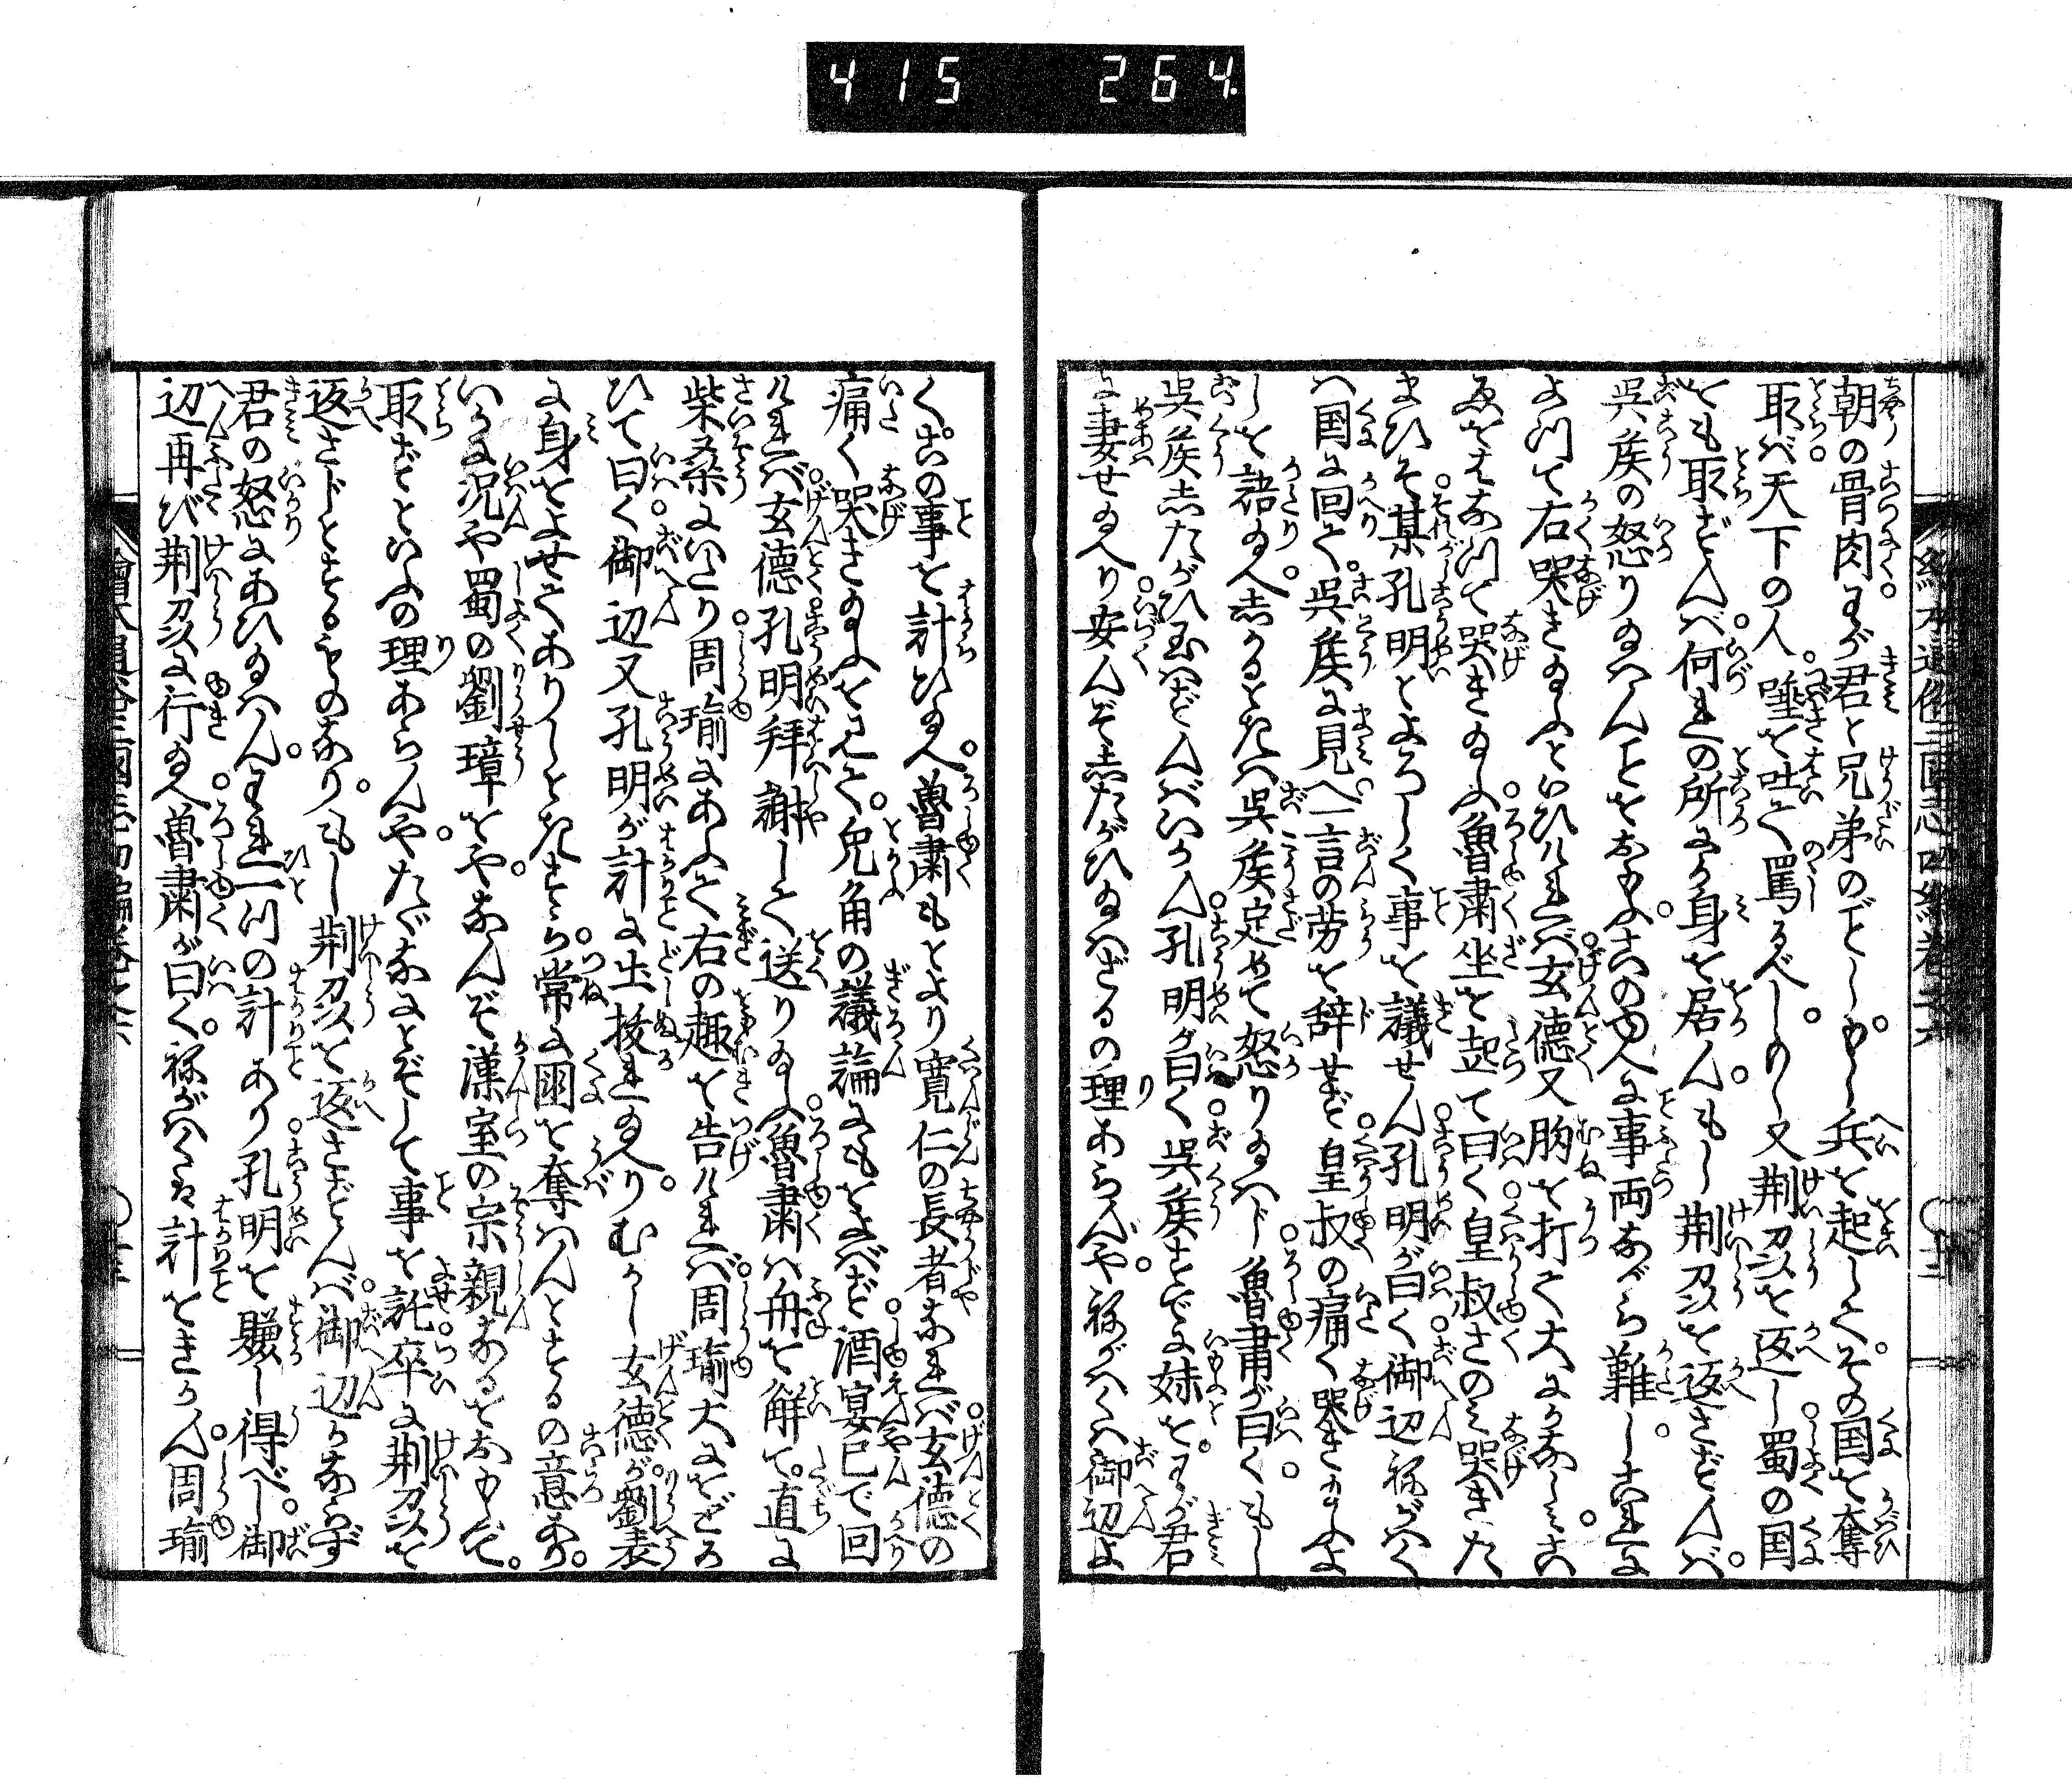 415 264.
朝の骨肉わが君と兄弟のごとしもし兵を起してその国を奪
取ば天下の人唾を吐て罵るべしもし又荆州を返し蜀の国
をも取ざらんば何れの所にか身を居んもし荆州を返さざんば
呉侯の怒りゐはんことをおもふこのゆへに事両ながら難しこれに
よつて右哭きゐふといひければ玄德又胸を打て大にかなしみこ
ゑをはなつて哭きゐふ魯粛坐を起て曰く皇叔さのみ哭きた
まひそ某孔明とよろしく事を議せん孔明が曰く御辺ねがはく
は国に回て呉侯に見へ一言の労を辞せず皇叔の痛く哭きゐふよ
しを語ゐへしかるときは呉侯定めて怒りゐはじ魯粛が曰くもし
呉侯したがひ玉はざんばいかん孔明が曰く呉侯すでに妹をわが君
に妻せゐへり安んぞしたがひゐはざるの理あらんやねがはくは御辺よ
くこの事を計ひゐへ魯粛もとより寛仁の長者なれば玄德の
痛く哭きゐふをみて兎角の議論にもをよばず酒宴已で回
ければ玄德孔明拝謝して送りゐふ魯粛は舟を解て直に
柴桑にいたり周瑜にあふて右の趣を告ければ周瑜大にをどろ
ひて曰く御辺又孔明が計に出抜れゐへりむかし玄德が劉表
に身をよせてありしときすら常に国を奪はんとするの意あり
いかに况や蜀の劉璋をやなんぞ漢室の宗親なるをおもふて
取ずといふの理あらんやたゞなにとぞして事を託卒に荆州を
返さじとするものなりもし荆州を返さざんば御辺かならず
君の怒にあひゐはんわれ一つの計あり孔明を賺し得べし御
辺再び荆州に行ゐへ魯粛が曰くねがはくは計をきかん周瑜